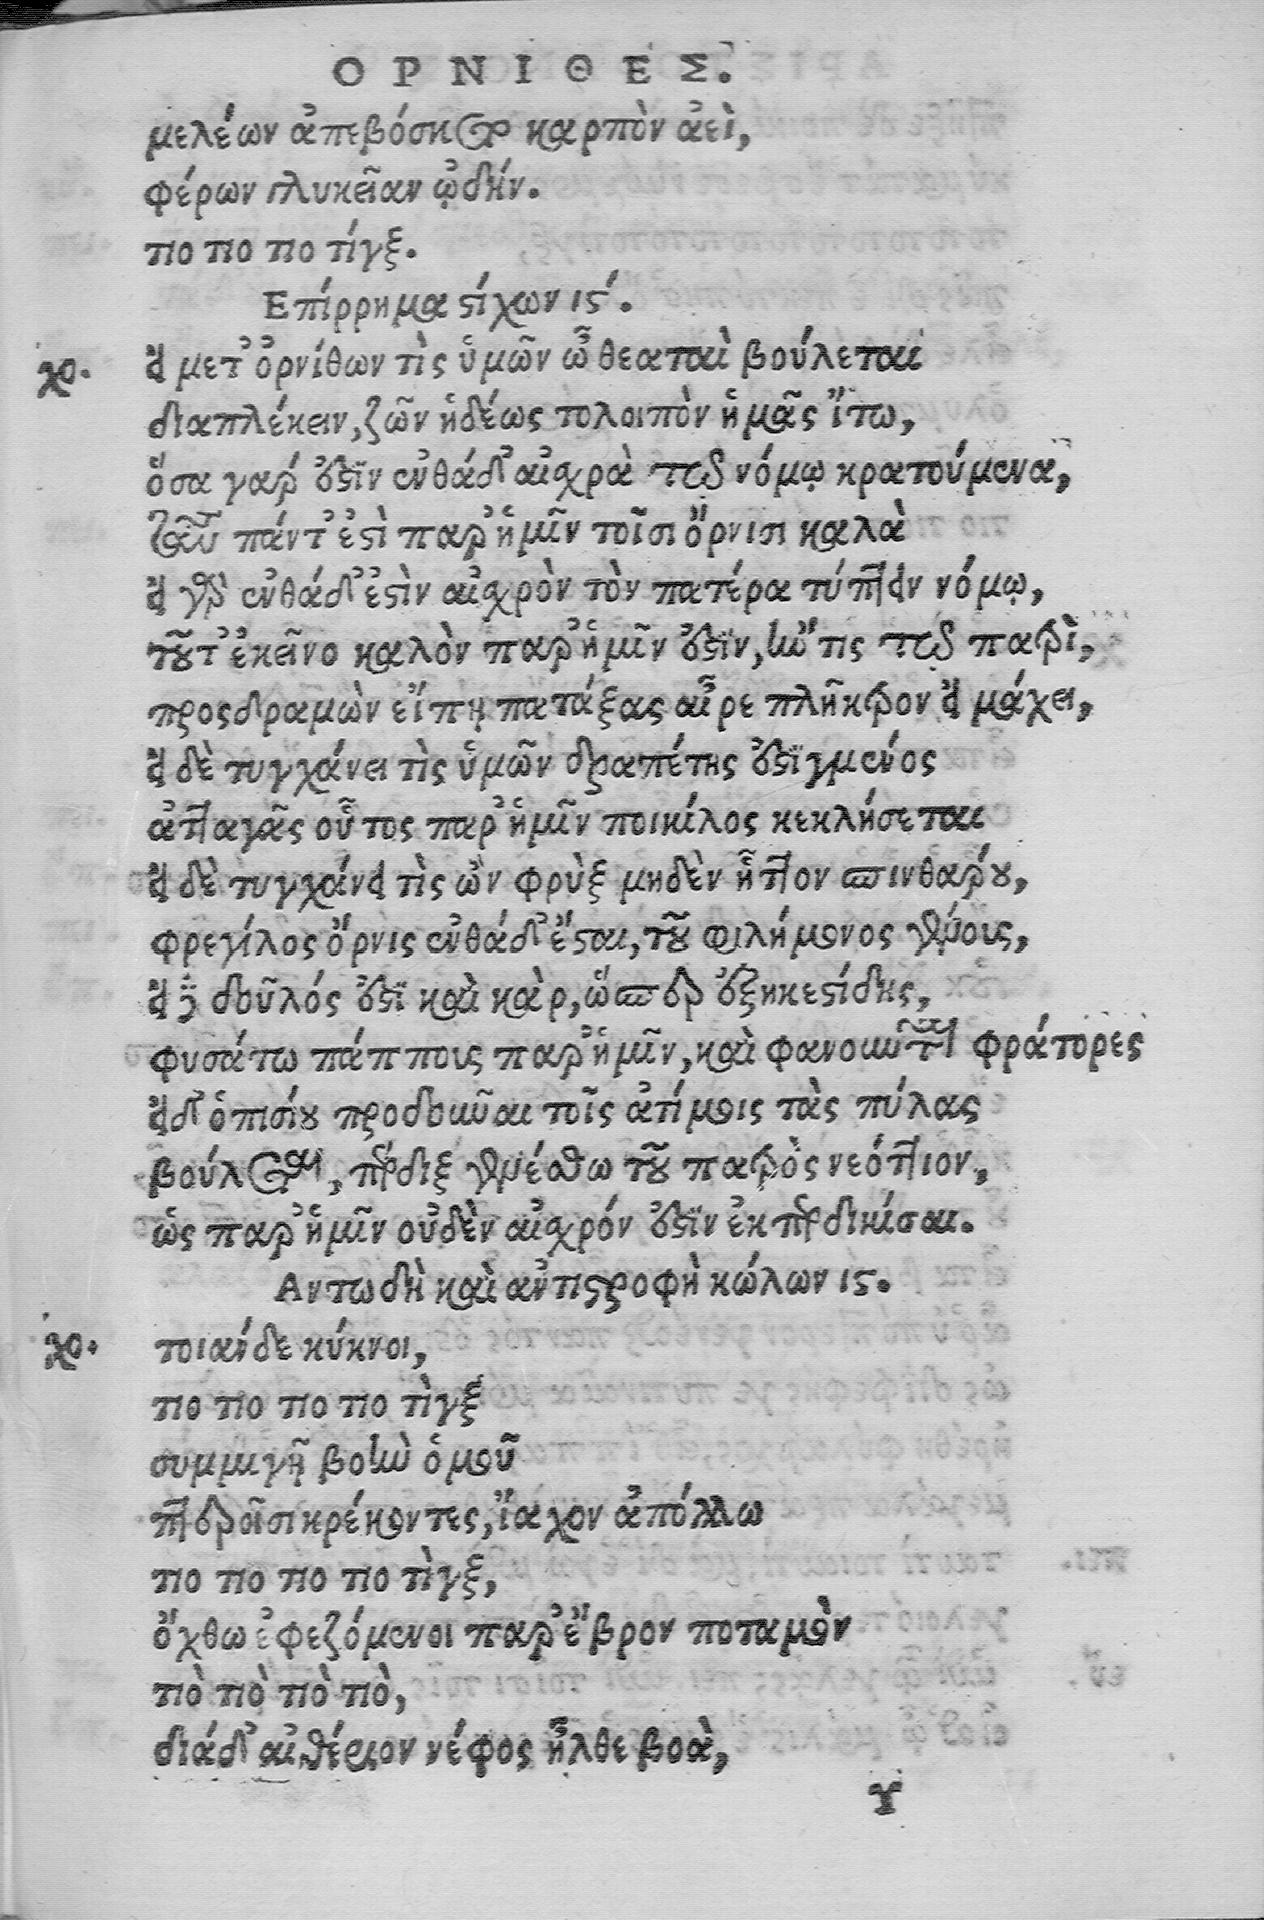 ΟΡΝΙΘΕΣ.
μελέων ἀπεβόσκετο καρπὸν ἀεὶ,
φέρων γλυκεῖαν ᾠδήν.
τιο τιο τιο τίγξ.
Επίρρημα στίχων ιϛ΄.
χο. εἰ μετ᾽ ὀρνίθων τὶς ὑμῶν ὦ θεαταὶ βούλεται
διαπλέκειν, ζῶν ἡδέως τολοιπὸν ἡμᾶς ἴτω,
ὅσα γαρ ἐστὶν ἐνθάδ᾽ αἰσχρὰ τῷ νόμῳ κρατούμενα,
ταῦτα πάντ᾽ ἐστὶ παρ᾽ ἡμῖν τοῖσι ὄρνισι καλὰ
εἰ γὰρ ἐνθάδ᾽ ἐστὶν αἰσχρὸν τὸν πατέρα τύπτειν νόμῳ,
τοῦτ᾽ ἐκεῖνο καλὸν παρ᾽ ἡμῖν ἐστὶν, ἤν τις τῷ πατρὶ,
προσδραμὼν εἴπῃ πατάξας αἶρε πλῆκτρον εἰ μάχει,
εἰ δὲ τυγχάνει τὶς ὑμῶν δραπέτης ἐστιγμένος
ἀτταγᾶς οὗτος παρ᾽ ἡμῖν ποικίλος κεκλήσεται
εἰ δὲ τυγχάνει τὶς ὢν φρὺξ μηδὲν ἧττον σπινθάρου,
φρεγίλος ὄρνις ἐνθάδ᾽ ἔσται, τοῦ φιλήμονος γένους,
εἰ δὲ δοῦλός ἐστι καὶ κὰρ, ὥσπερ ἐξηκεστίδης,
φυσάτω πάππους παρ᾽ ἡμῖν, καὶ φανοῦνται φράτορες
εἰ δ᾽ ὁ πισίου προδοῦναι τοῖς ἀτίμοις τὰς πύλας
βούλεται, πέρδιξ γενέσθω τοῦ πατρὸς νεόττιον,
ὡς παρ᾽ ἡμῖν οὐδὲν αἰσχρόν ἐστὶν ἐκπερδικίσαι.
Αντωδὴ καὶ ἀντιστροφὴ κώλων ιϛ.
χο. τοιαύδε κύκνοι,
τιο τιο τιο τιο τὶγξ
συμμιγῆ βοὴν ὁμοῦ
πτεροῖσι κρέκοντες, ἴαχον ἀπόλλω
τιο τιο τιο τιο τὶγξ,
ὄχθω ἐφεζόμενοι παρ᾽ ἕβρον ποταμὸν
τιὸ τιὸ τιὸ τιὸ,
διάδ᾽ αἰθέριον νέφος ἦλθε βοὰ,
Υ